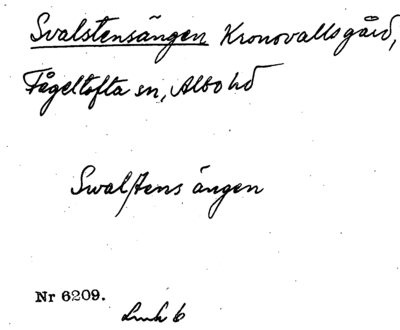 Svalstensängen Kronovalls gård,
Fågeltofta sn, Albo hd
Swalstens ängen
Nr 6209.